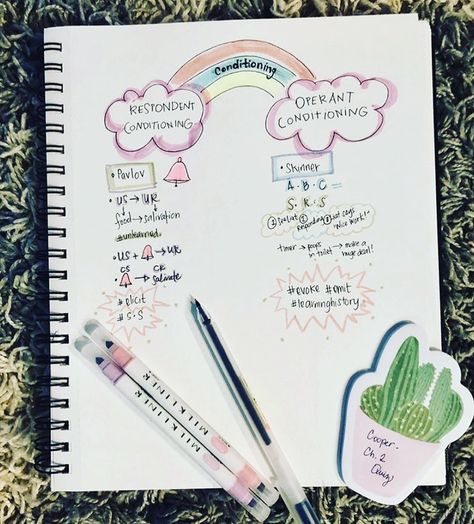 Conditioning
RESPONDENT
CONDITIONING
• Pavlov
• US → UR
food → salivation
#unlearned
• US + → UR
CS CR
→ salivate
#elicit
#S-S
OPERANT
CONDITIONING
• Skinner
A • B • C
S • R • S
"Nice work!"
timer → poops in toilet → make a huge deal!
#evoke #emit
#learninghistory
MILKLINER
MILKLINER
Cooper
Ch. 2
Quiz